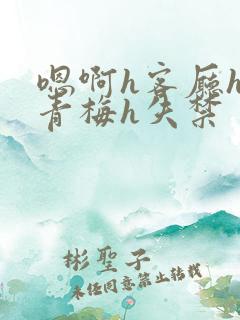 嗯啊h客厅h
青梅h失禁
彬聖子
未任同意禁止转载